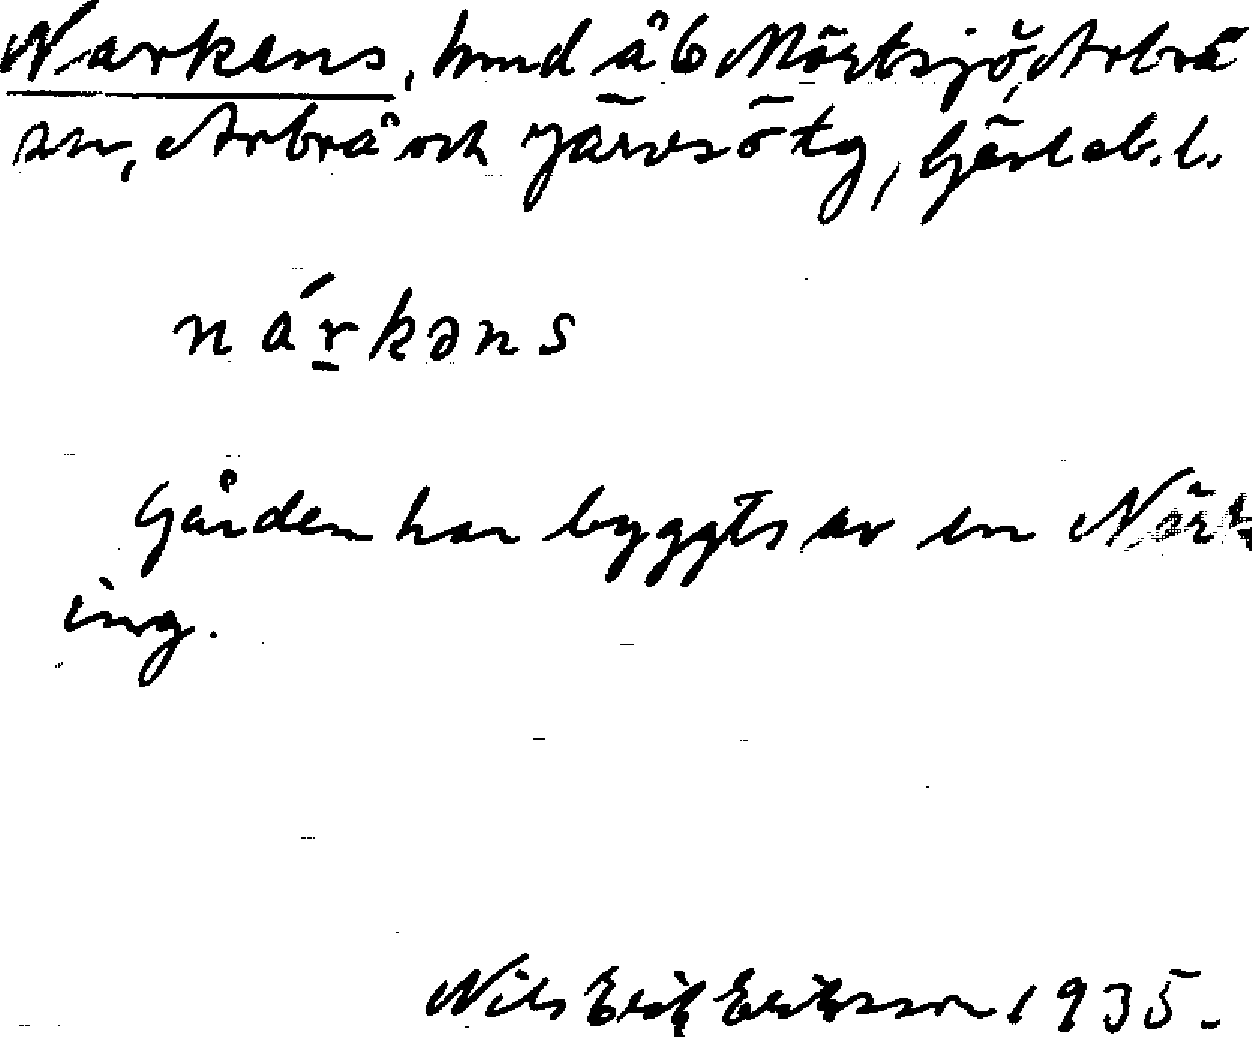 Narkens, hmd å 6 Mörtsjö, Arbrå
sn, Arbrå och Järvsö tg, Gävleb. l.
nárkəns
Gården har byggts av en Närk-
ing.
Nils Erik Eriksson 1935.